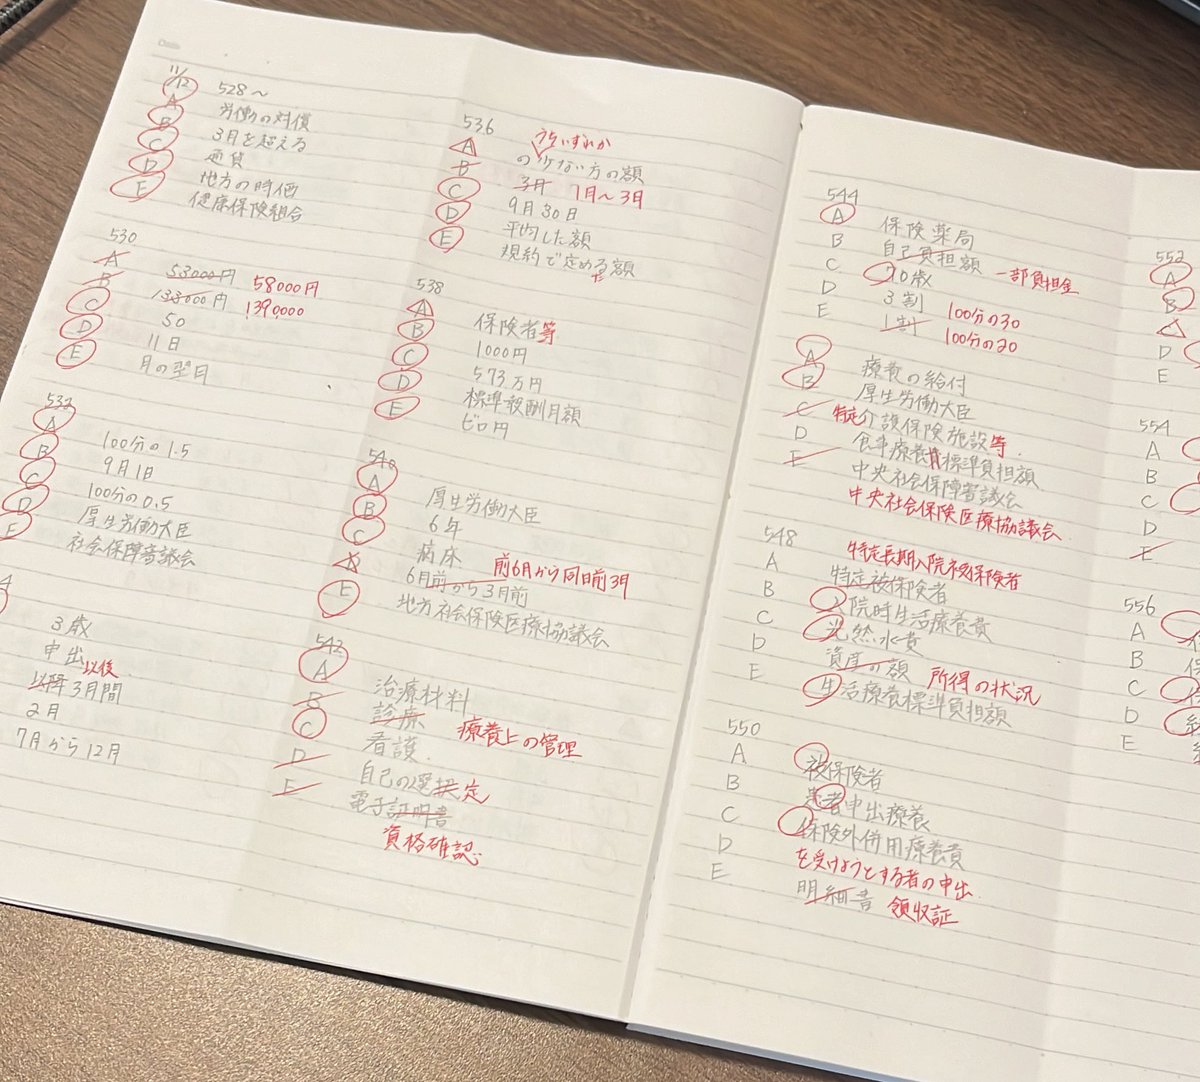 11/12 528〜
A 労働の対償
B 3月を超える
C 通貨
D 地方の時価
E 健康保険組合
530
A 53000円 58000円
B 133000円 139,000
C 50
D 11日
E 月の翌月
532
A 100分の1.5
B 9月1日
C 100分の0.5
D 厚生労働大臣
E 社会保障審議会
4
3歳
申出以後
以降3月間
2月
7月から12月
536 うちいずれか
A の少ない方の額
B 3月 1月〜3月
C 9月30日
D 平均した額
E 規約で定める額
538
A 保険者等
B 1000円
C 573万円
D 標準報酬月額
E ゼロ円
540
A 厚生労働大臣
B 6年
C 病床 前6月から同日前3月
D 6月前から3月前
E 地方社会保険医療協議会
542
A 治療材料
B 診療 療養上の管理
C 看護
D 自己の選択定
E 電子証明書
資格確認
544
A 保険薬局
B 自己負担額 一部負担金
C 70歳
D 3割 100分の30
E 1割 100分の20
A 療養の給付
B 厚生労働大臣
C 特定介護保険施設等
D 食事療養標準負担額
E 中央社会保障審議会
中央社会保険医療協議会
548 特定長期入院被保険者
A 特定被保険者
B 入院時生活療養費
C 光熱水費
D 資産の額 所得の状況
E 生活療養標準負担額
550
A 被保険者
B 患者申出療養
C 保険外併用療養費
D を受けようとする者の申出
E 明細書 領収証
552
A
B
C
D
E
554
A
B
C
D
E
556
A
B
C
D
E